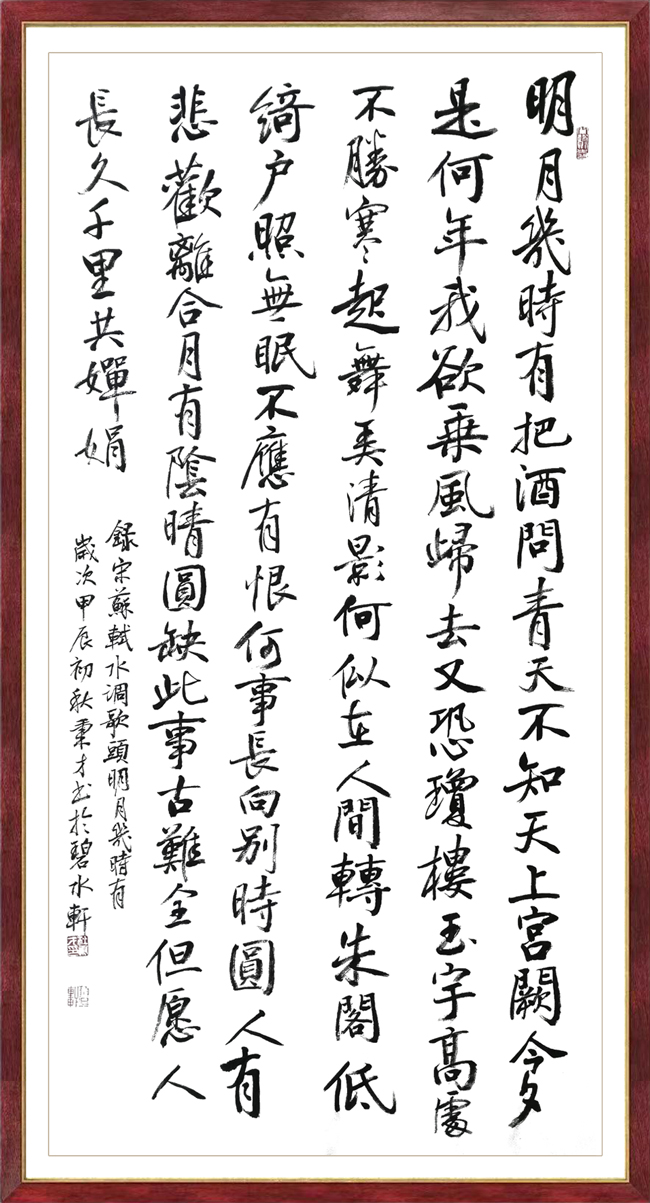 明月幾時有把酒問青天不知天上宮闕今夕
是何年我欲乘風歸去又恐瓊樓玉宇高處
不勝寒起舞弄清影何似在人間轉朱閣低
綺户照無眠不應有恨何事長向别時圓人有
悲歡離合月有陰晴圓缺此事古難全但愿人
長久千里共嬋娟
録宋蘇軾水调歌頭明月幾時有
歲次甲辰初秋秉才书於碧水軒